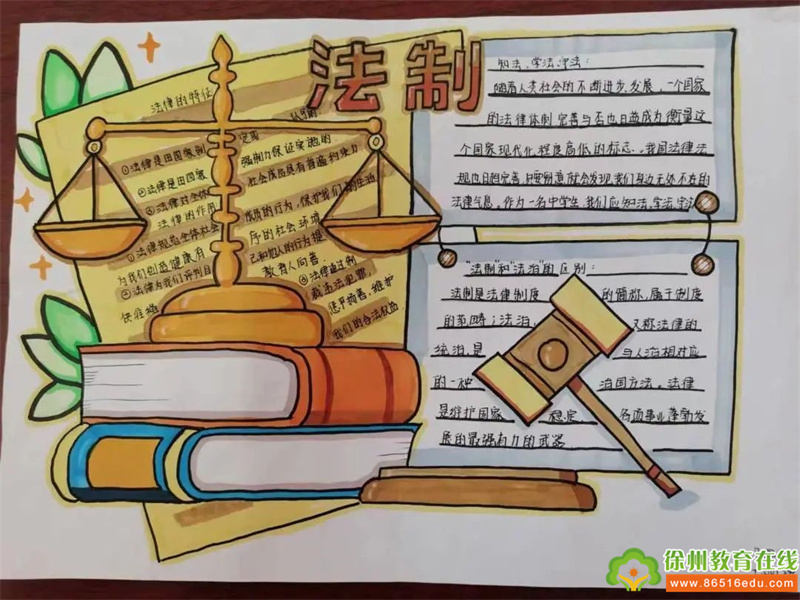 法制
法律的特征
①法律是由国家制
②法律是由国家
强制力保证实施的
③法律对全体
社会成员具有普遍约束力
法律的作用
①法律规范全体社会
成员的行为，保护我们的生活
为我们创造健康有
序的社会环境
②法律为我们评判自
己和他人的行为提
供准绳
教育人向善
③法律通过制
裁违法犯罪，
惩罚犯罪、维护
我们的合法权益
知法、学法、守法：
随着人类社会的不断进步、发展，一个国家
的法律体制完善与否也日益成为衡量这
个国家现代化程度高低的标志。我国法律法
规也日趋完善，只要留意就会发现我们身边无处不在的
法律气息。作为一名中学生，我们应知法、学法、守法
“法制”和“法治”的区别：
法制是法律制度的简称，属于制度
的范畴；法治，又称法律的
统治，是与人治相对应
的一种治国方法，法律
是维护国家稳定、各项事业蓬勃发
展的最强有力的武器
徐州教育在线
www.86516edu.com